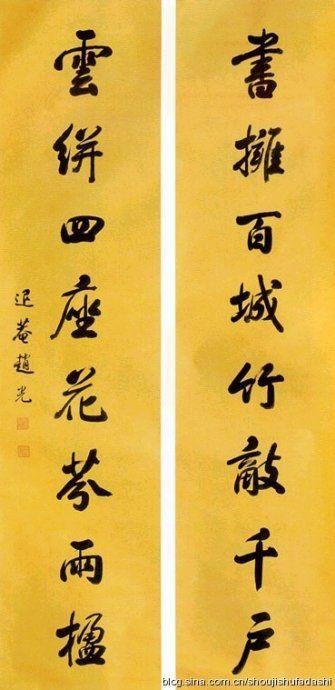 書擁百城竹敲千戶
雲絣四座花芬兩楹
退菴趙光
blog.sina.com.cn/shoujishufadashi